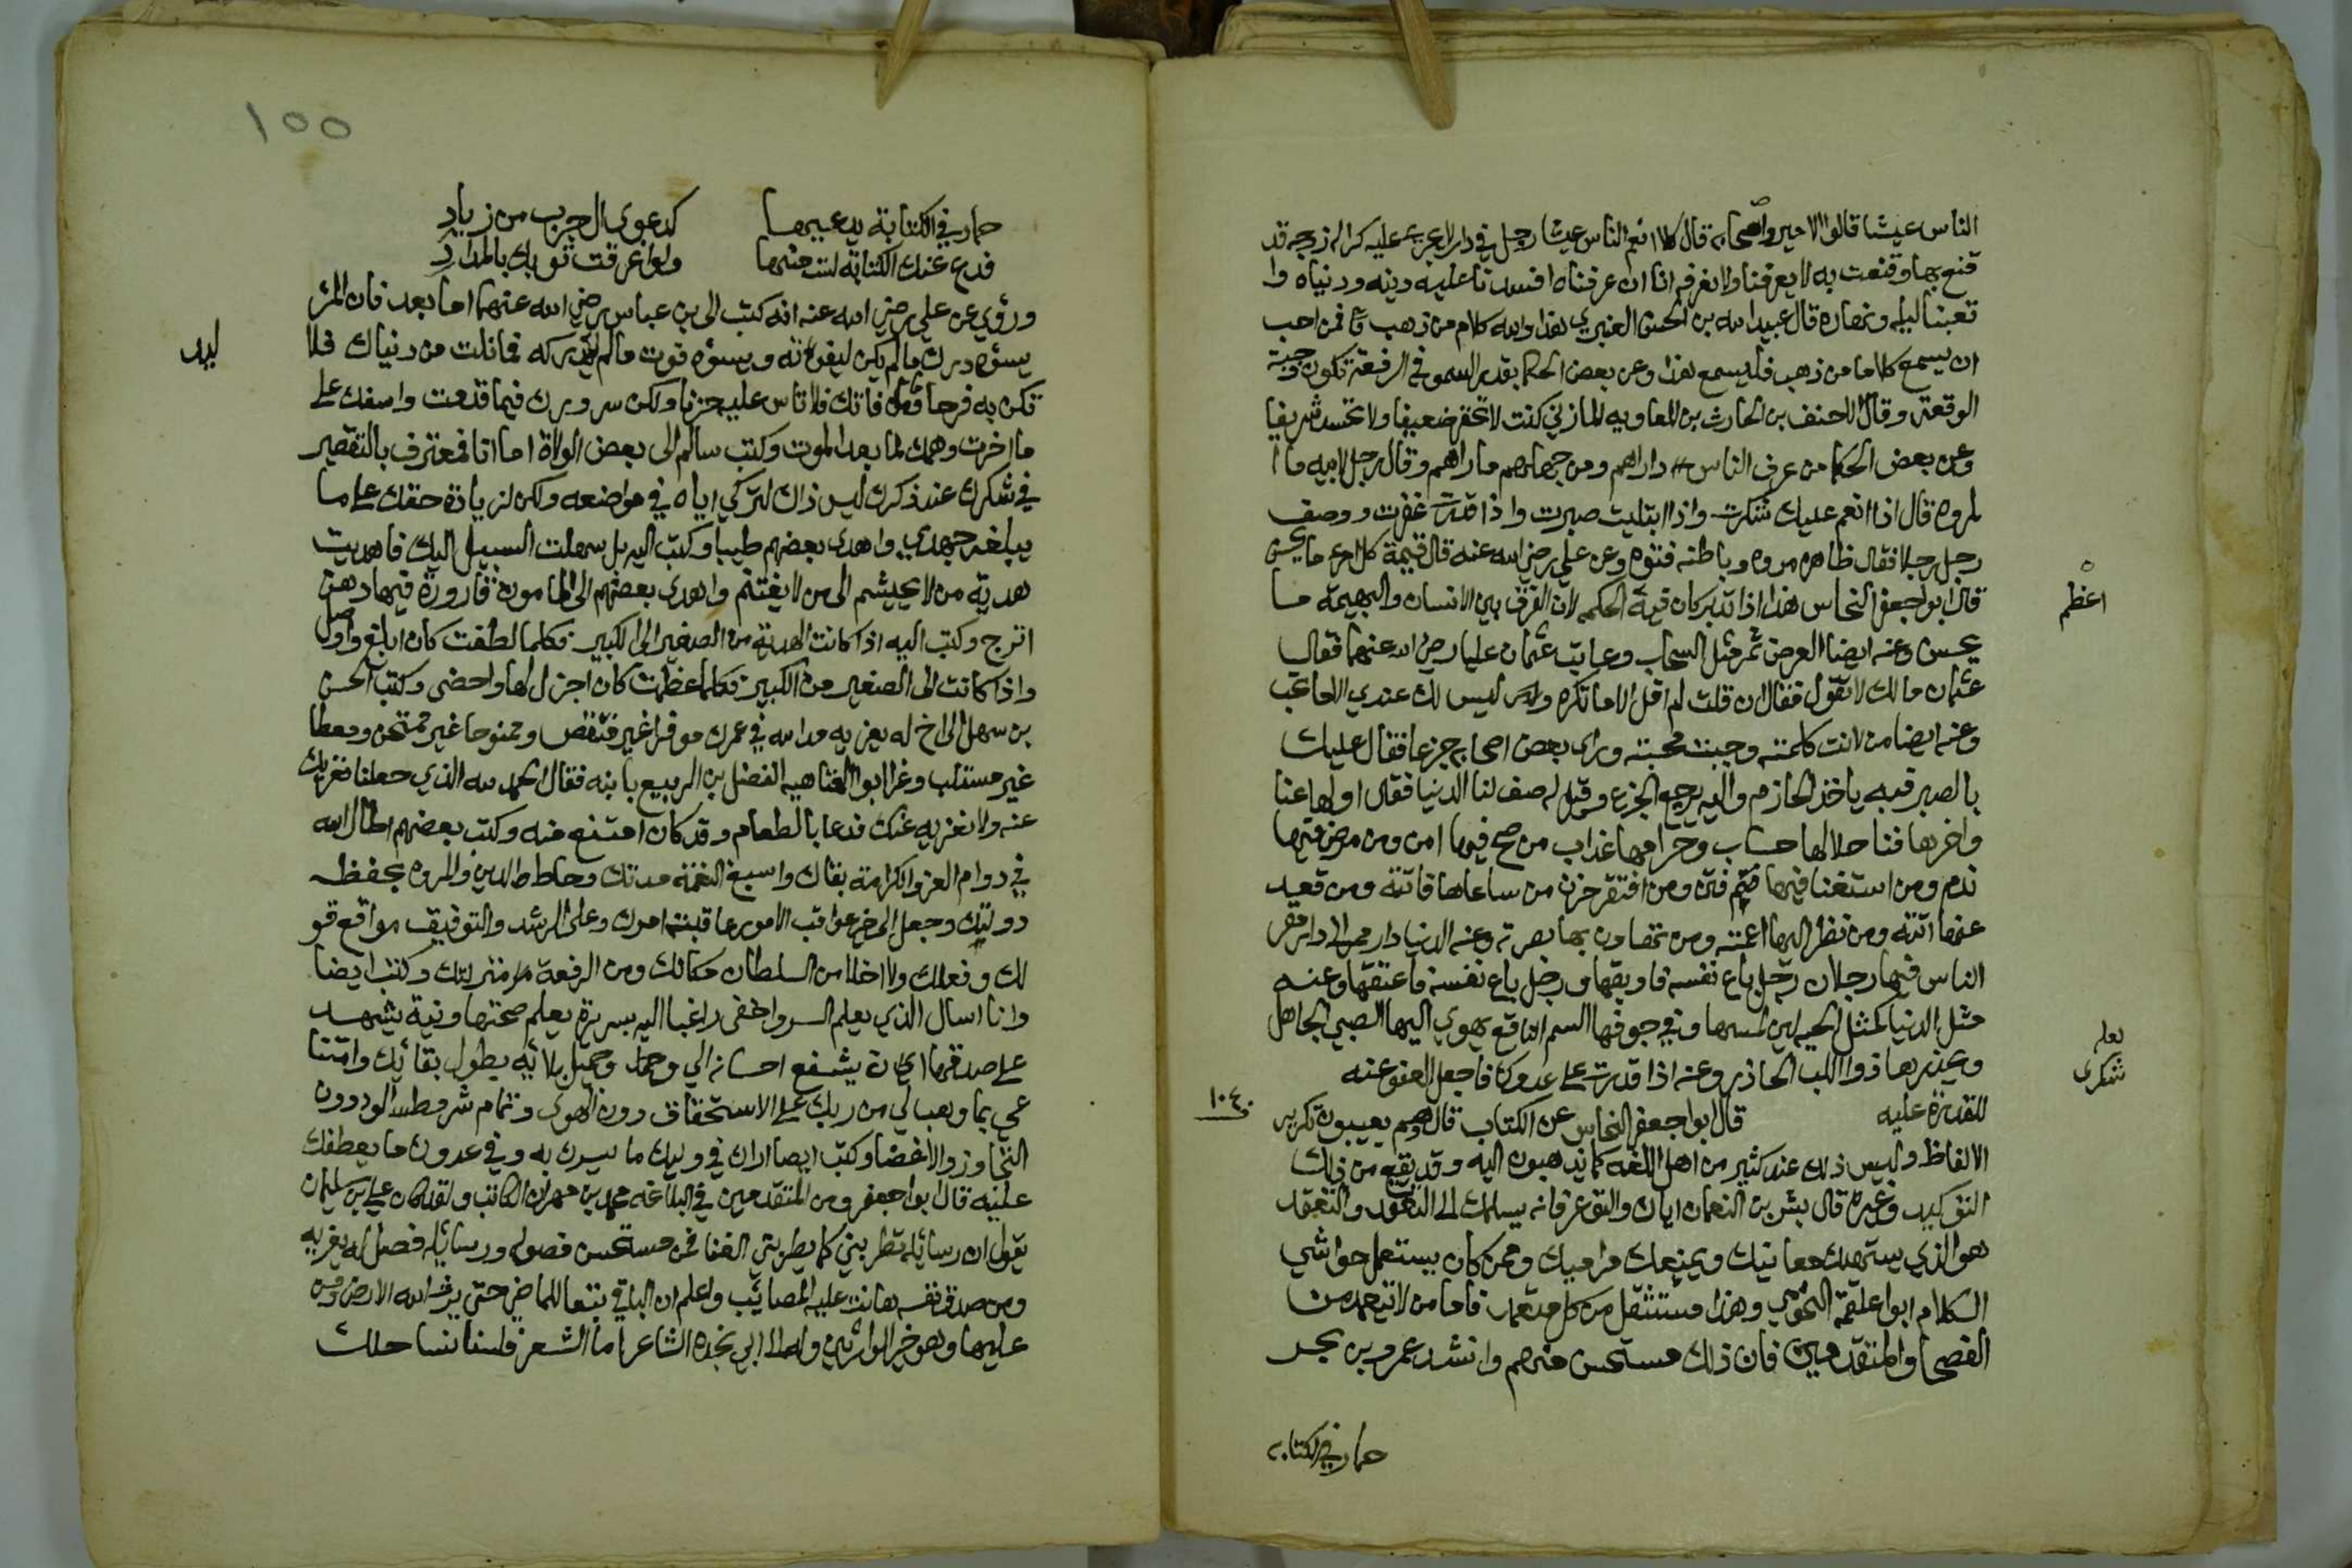 الناس عيشا قالوا الامير واصحابه قال كلا انعم الناس عيشا رجل في دار لا يجري عليه كرا له زوجه قد
قنع بها وقنعت به لا يعرفنا ولا نعرفه انا ان عرفناه افسدنا عليه دينه ودنياه وا
تعبنا ليله ونهاره قال عبيد الله بن الحسن العنبري هذا والله كلام من ذهب فمن احب
ان يسمع كلاما من ذهب فليسمع هذا وعن بعض الحكما بقدر السمو في الرفعة تكون وجبة
الوقعة وقال الاحنف بن الحارث بن المعاويه المازني كنت لا تحقر ضعيفا ولا تحسد شريفا
وعن بعض الحكما من عرف الناس داراهم ومن جهلهم ماراهم وقال رجل لابيه ما ا
لمروه قال اذا انعم عليك شكرت واذا ابتليت صبرت واذا قدرت غفرت ووصف
رجل رجلا فقال ظاهره مروه وباطنه فتوه وعن علي رضي الله عنه قال قيمة كل امرء ما يحسن
قال ابوا جعفر النحاس هذا اذا تدبر كان فيه الحكمه لان الفرق بين الانسان والبهيمة ما
اعظم
يحسن وعنه ايضا الفرص تمر مثل السحاب وعاتب عثمان عليا رضي الله عنهما فقال
عثمان مالك لا تقول فقال ان قلت لم اقل الا ما تكره وليس لك عندي الا ما تحب
وعنه ايضا من لانت كلمته وجبت محبته وراى بعض اصحابه جزعا فقال عليك
بالصبر فبه ياخذ الحازم واليه يرجع الجزع وقيل له صف لنا الدنيا فقال اولها عنا
واخرها فنا حلالها حساب وحرامها عذاب من صح فيها امن ومن مرض فيها
ندم ومن استغنا فيها فتن ومن افتقر حزن من ساعاها فاتته ومن قعد
عنها اتته ومن نظر اليها اعمته ومن تهاون بها بصرته وعنه الدنيا دار ممر الا دار مقر
الناس فيها رجلان رجل باع نفسه فاوبقها ورجل باع نفسه فاعتقها وعنه
مثل الدنيا كمثل الحيه لين لمسها وفي جوفها السم الناقع يهوي اليها الصبي الجاهل
ويحذرها ذوا اللب الحاذر وعنه اذا قدرت على عدوك فاجعل العفو عنه
شكرى
للقدرة عليه قال ابوا جعفر النحاس عن الكتاب قال وهم يعيبون تكرير
الالفاظ وليس ذلك عند كثير من اهل اللغه كما يذهبون اليه وقد يقع من ذلك
التوكيد وغيره قال بشر بن النعمان اياك والتوعر فانه يسلمك الى التعقد والتعقد
هو الذي يستهلك معانيك ويمنعك مراميك وممن كان يستعمل حواشي
الكلام ابوا علقمة النحوي وهذا مستثقل من كل متعمد فاما من لا يتعمد من
الفصحا والمتقدمين فان ذلك مستحسن منهم وانشد عمرو بن بحر
حمار في الكتابه
١٠٤٠
١٥٥
حمار في الكتابة يدعيها كدعوى ال حرب من زياد
فدع عنك الكتابة لست منها ولوا غرقت ثوبك بالمداد
وروي عن علي رضي الله عنه انه كتب الى بن عباس رضي الله عنهما اما بعد فان المر
يسوه درك ما لم يكن ليفوته ويسوه فوت ما لم يكن ليدركه فما نلت من دنياك فلا
تكن به فرحا وما فاتك فلا تاس عليه حزنا وليكن سرورك فيما قدمت واسفك على
ما اخرت وهمك لما بعد الموت وكتب سالم الى بعض الولاة اما انا فمعترف بالتقصير
في شكرك عند ذكرك ليس ذاك لتركي اياه في مواضعه ولكن لزيادة حقك على ما
يبلغه جهدي واهدى بعضهم طيبا وكتب اليه بل سهلت السبيل اليك فاهديت
هدية من لا يحتشم الى من لا يغتنم واهدى بعضهم الى المامون قارورة فيها دهن
اترج وكتب اليه اذا كانت الهدية من الصغير الى الكبير فكلما لطفت كان ابلغ واوصل
واذا كانت الى الصغير من الكبير فكلما عظمت كان اجزل لها واحضى وكتب الحسن
بن سهل الى اخ له يعزيه مد الله في عمرك موفرا غير منتقص وممنوحا غير ممتحن ومعطا
غير مستلب وعزا ابوا العتاهيه الفضل بن الربيع بابنه فقال الحمد لله الذي جعلنا نعزيك
عنه ولا نعزيه عنك فدعا بالطعام وقد كان امتنع منه وكتب بعضهم اطال الله
في دوام العز والكرامة بقاك واسبغ النعمة مدتك وحاط الدين والمروه بحفظه
دولتك وجعل الى خير عواقب الامور عاقبة امرك وعلى الرشد والتوفيق مواقع قو
لك وفعلك ولا اخلا من السلطان مكانك ومن الرفعة منزلتك وكتب ايضا
وانا اسال الذي يعلم السر واخفى راغبا اليه بسريرة يعلم صحتها ونية يشهد
على صدقها ان يشفع احسانه الي وجميل بلائه بطول بقائك وامتنا
عي بما وهب لي من ربك على الاستحقاق دون الهوى وتمام شرطه الود دون
التجاوز والاغضا وكتب ايضا اراك الله في وليك ما يسرك به وفي عدوك ما يعطفك
عليه قال ابوا جعفر ومن المتقدمين في البلاغه محمد بن مهران الكاتب ولقد كان علي بن سليمان
يقول ان رسائله تطربني كما يطربني الغنا فمن مستحسن فصوله ورسائله فصل له يعزيه
ومن صدق نفسه هانت عليه المصائب واعلم ان الباقي يتبع الماضي حتى يرث الله الارض ومن
عليها وهو خير الوارثين وله الى ابي نجده الشاعر اما الشعر فلسنا نساجلك